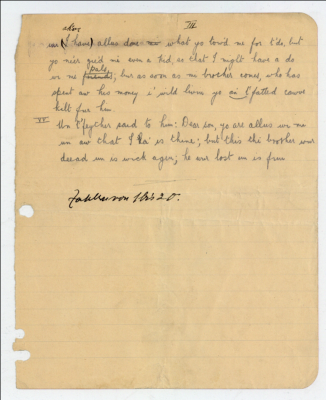 VII
akbre
un (I have) allus done no what yo towd me for t'do, but
yo nier gied me even a kid, so that I might have a do
wi me friends pals; but as soon as mi brother comes, who has
spent aw his money i' wild livin yo an I fatted cawve
kilt fur him.
VI Un t'feyther said to him: Dear son, yo are allus wi me
un aw that I ha' is thine; but this thi brother wur
deead un is wick agen; he wur lost un is fun
1620.